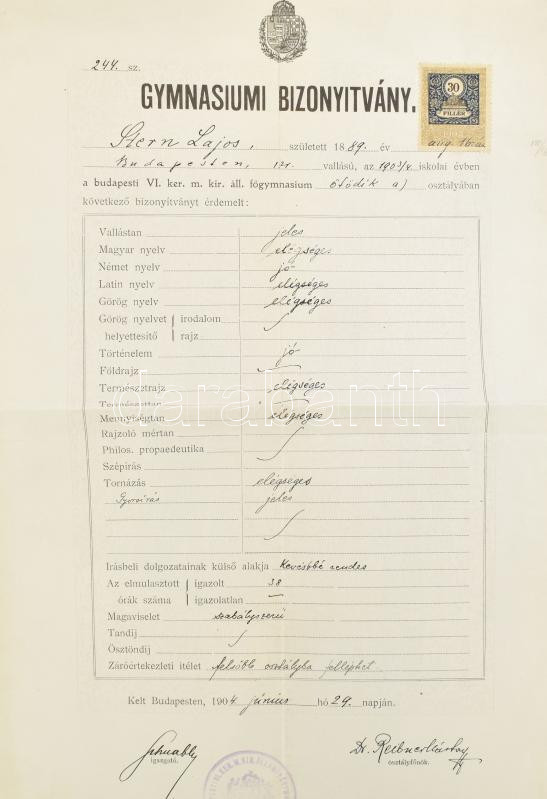 244. sz.
GYMNASIUMI BIZONYITVÁNY.
30
FILLÉR
Stern Lajos, született 1889. év aug.
Budapesten, izr. vallású, az 1903/4. iskolai évben
a budapesti VI. ker. m. kir. áll. főgymnasium ötödik a) osztályában
következő bizonyítványt érdemelt:
Vallástan jeles
Magyar nyelv elégséges
Német nyelv jó
Latin nyelv elégséges
Görög nyelv elégséges
Görög nyelvet irodalom
helyettesítő rajz
Történelem jó
Földrajz
Természetrajz elégséges
Természettan
Mennyiségtan elégséges
Rajzoló mértan
Philos. propaedeutika
Szépírás
Tornázás elégséges
Gyorsírás jeles
Irásbeli dolgozatainak külső alakja Kevésbbé rendes
Az elmulasztott igazolt 38
órák száma igazolatlan —
Magaviselet szabályszerű
Tandíj
Ösztöndíj
Záróértekezleti ítélet felsőbb osztályba felléphet
Kelt Budapesten, 1904 június hó 29. napján.
Schuably
igazgató.
Dr.
osztályfőnök.
darabanth